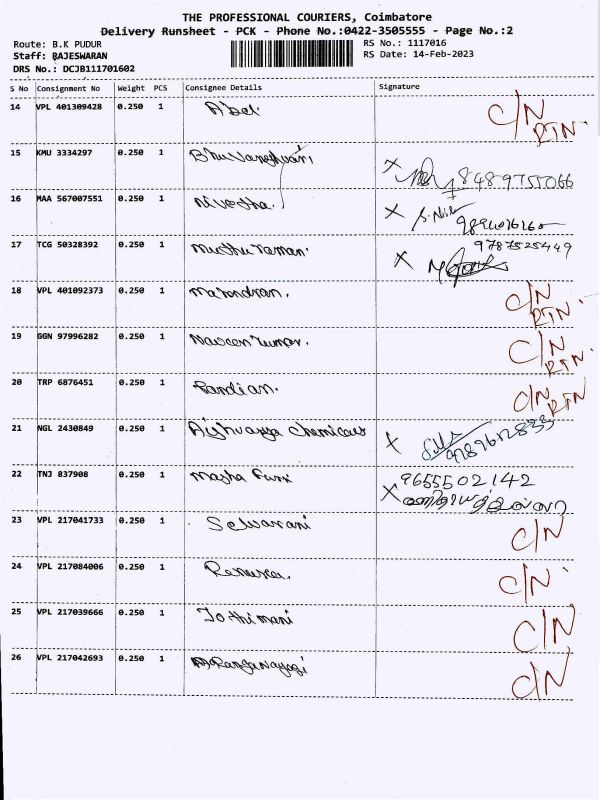 THE PROFESSIONAL COURIERS, Coimbatore
Delivery Runsheet - PCK - Phone No.:0422-3505555 - Page No.:2
Route: B.K PUDUR
RS No.: 1117016
Staff: RAJESWARAN
RS Date: 14-Feb-2023
DRS No.: DCJB111701602
S No Consignment No Weight PCS Consignee Details Signature
14 VPL 401309428 0.250 1 Abel. C/N RTN.
15 KMU 3334297 0.250 1 Bhuvaneshwari X 8489755066
16 MAA 567007551 0.250 1 Nivedha. X
17 TCG 50328392 0.250 1 Muthu raman. X 9787525449
18 VPL 401092373 0.250 1 Mahendran. C/N RTN.
19 GGN 97996282 0.250 1 Naveen kumar. C/N RTN.
20 TRP 6876451 0.250 1 Pandian. C/N RTN
21 NGL 2430849 0.250 1 Aishvarya Chemicals X
22 TNJ 837908 0.250 1 X 9655502142
23 VPL 217041733 0.250 1 Selvarani C/N
24 VPL 217084006 0.250 1 Renuka. C/N.
25 VPL 217039666 0.250 1 Jothimani C/N
26 VPL 217042693 0.250 1 C/N